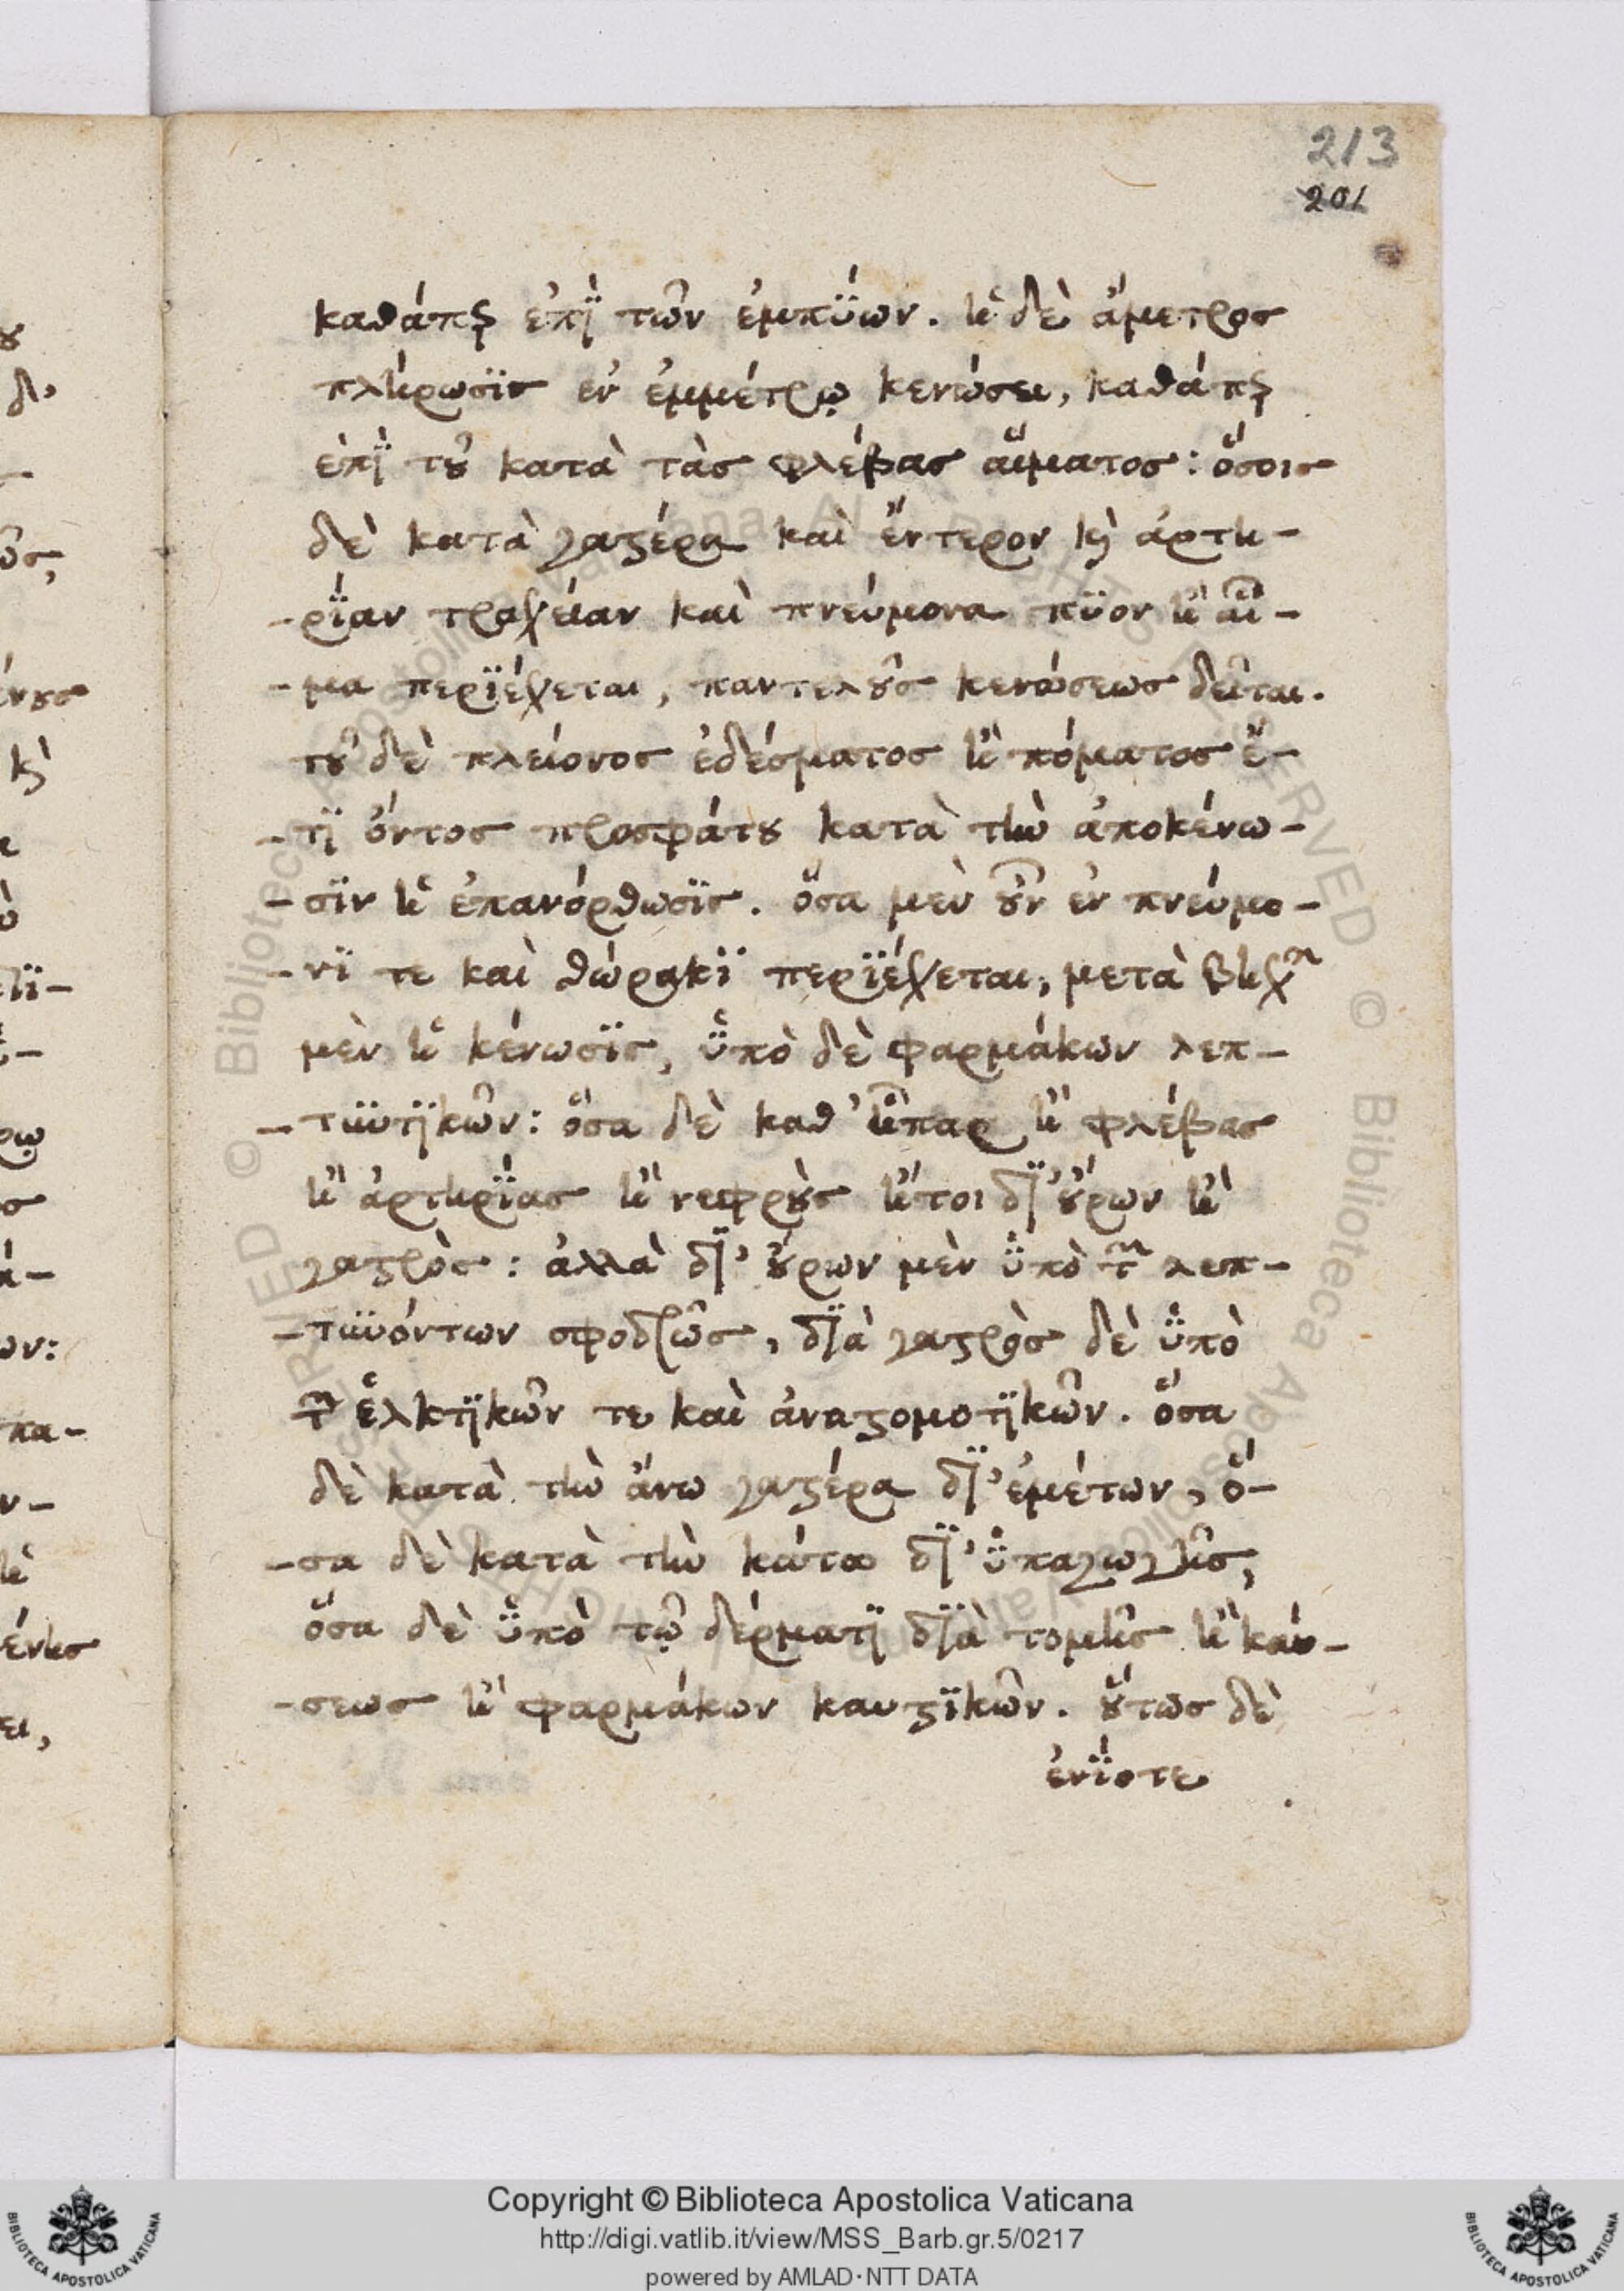 213
201
καθάπερ ἐπῒ τῶν ἐμπϋων. ἡ δὲ ἄμετρος
πλήρωσϊς ἐν ἐμμέτρῳ κενώσει, καθάπερ
ἐπῒ τȣ͂ κατὰ τὰς φλέβας αἵματος: ὅσοις
δὲ κατὰ γαϛέρα καὶ ἔντερον κὶ ἀρτη-
-ρΐαν τραχείαν καὶ πνεύμονα πϋον ἢ αἷ-
-μα περϊέχεται, παντελȣ͂ς κενώσεως δεῖται.
τȣ͂ δὲ πλείονος ἐδέσματος ἢ πόματος ἔ-
-τϊ ὄντος προσφάτȣ κατὰ τὴν ἀποκένω-
-σϊν ἡ ἐπανόρθωσϊς. ὅσα μὲν ȣ̓͂ν ἐν πνεύμο-
-νϊ τε καὶ θώρακϊ περϊέχεται, μετὰ βηχὸς
μὲν ἡ κένωσϊς, ὑπὸ δὲ φαρμάκων λεπ-
-τυντϊκῶν: ὅσα δὲ καθ' ἧπαρ ἢ φλέβας
ἢ ἀρτηρΐας ἢ νεφρȣ̀ς ἤτοι δϊ' ȣ̓́ρων ἢ
γαϛρὸς: ἀλλὰ δϊ' ȣ̓́ρων μὲν ὑπὸ τῶν λεπ-
-τυνόντων σφοδρῶς, δϊὰ γαϛρὸς δὲ ὑπὸ
τῶν ἑλκτϊκῶν τε καὶ ἀναϛομοτϊκῶν. ὅσα
δὲ κατὰ τὴν ἄνω γαϛέρα δϊ' ἐμέτων, ὅ-
-σα δὲ κατὰ τὴν κάτω δϊ' ὑπαγωγῆς,
ὅσα δὲ ὑπὸ τῷ δέρματϊ δϊὰ τομῆς ἢ καύ-
-σεως ἢ φαρμάκων καυϛϊκῶν. ȣ̔́τως δὲ
ἐνΐοτε
Copyright © Biblioteca Apostolica Vaticana
http://digi.vatlib.it/view/MSS_Barb.gr.5/0217
powered by AMLAD·NTT DATA
BIBLIOTECA APOSTOLICA VATICANA
BIBLIOTECA APOSTOLICA VATICANA